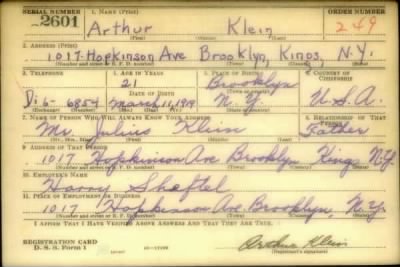 SERIAL NUMBER 1. NAME (Print) ORDER NUMBER
2601 Arthur Klein 249
(First) (Middle) (Last)
2. ADDRESS (Print)
1017 Hopkinson Ave Brooklyn, Kings, N.Y.
(Number and street or R. F. D. number) (Town) (County) (State)
3. TELEPHONE 4. AGE IN YEARS 5. PLACE OF BIRTH 6. COUNTRY OF CITIZENSHIP
21 Brooklyn
DATE OF BIRTH (Town or county)
Di 6-6854 March 11, 1919 N.Y. U.S.A.
(Exchange) (Number) (Mo.) (Day) (Yr.) (State or country)
7. NAME OF PERSON WHO WILL ALWAYS KNOW YOUR ADDRESS 8. RELATIONSHIP OF THAT PERSON
Mr. Julius Klein Father
(Mr., Mrs., Miss) (First) (Middle) (Last)
9. ADDRESS OF THAT PERSON
1017 Hopkinson Ave Brooklyn Kings N.Y.
(Number and street or R. F. D. number) (Town) (County) (State)
10. EMPLOYER'S NAME
Harry Sheftel
11. PLACE OF EMPLOYMENT OR BUSINESS
1017 Hopkinson Ave. Brooklyn, N.Y.
(Number and street or R. F. D. number) (Town) (County) (State)
I AFFIRM THAT I HAVE VERIFIED ABOVE ANSWERS AND THAT THEY ARE TRUE.
REGISTRATION CARD
D. S. S. Form 1 Arthur Klein
(Registrant's signature)